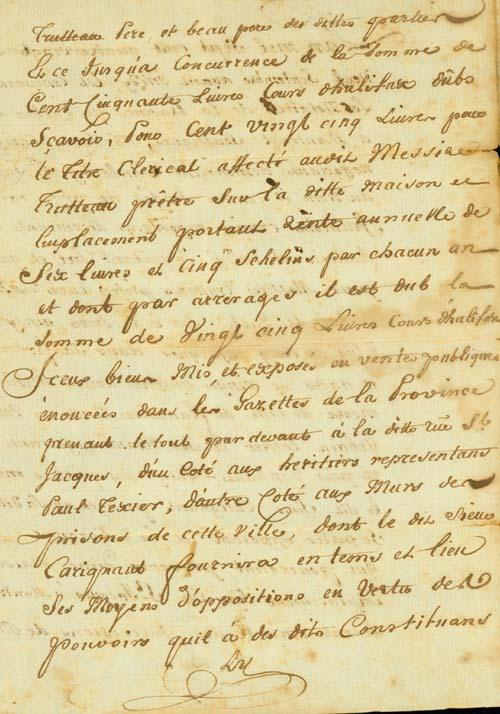 Trutteau Pere et beau pere des dittes parties
Et ce Jusqu'a Concurrence de la Somme de
Cent Cinquante Livres Cours d'halifax dûbs
Sçavoir, Pour Cent vingt cinq Livres pour
le Titre Clerical affecté audit Messire
Trutteau prêtre Sur la ditte maison et
Emplacement portant Rente annuelle de
Six livres et Cinq Schelins par chacun an
et dont par arrerages il est dub la
Somme de Vingt cinq Livres Cours d'halifax
Iceux biens Mis et exposés en vente publique
énoncées dans les Gazettes de la Province
prenant le tout pardevant à la ditte rüe St.
Jacques, d'un Coté aux heritiers representans
Paul Texier, d'autre Coté aux Murs des
prisons de cette Ville, dont le dit Sieur
Carignant fournira en tems et lieu
Ses Moyens d'oppositions en Vertu des
Pouvoirs quil à des dits Constituans